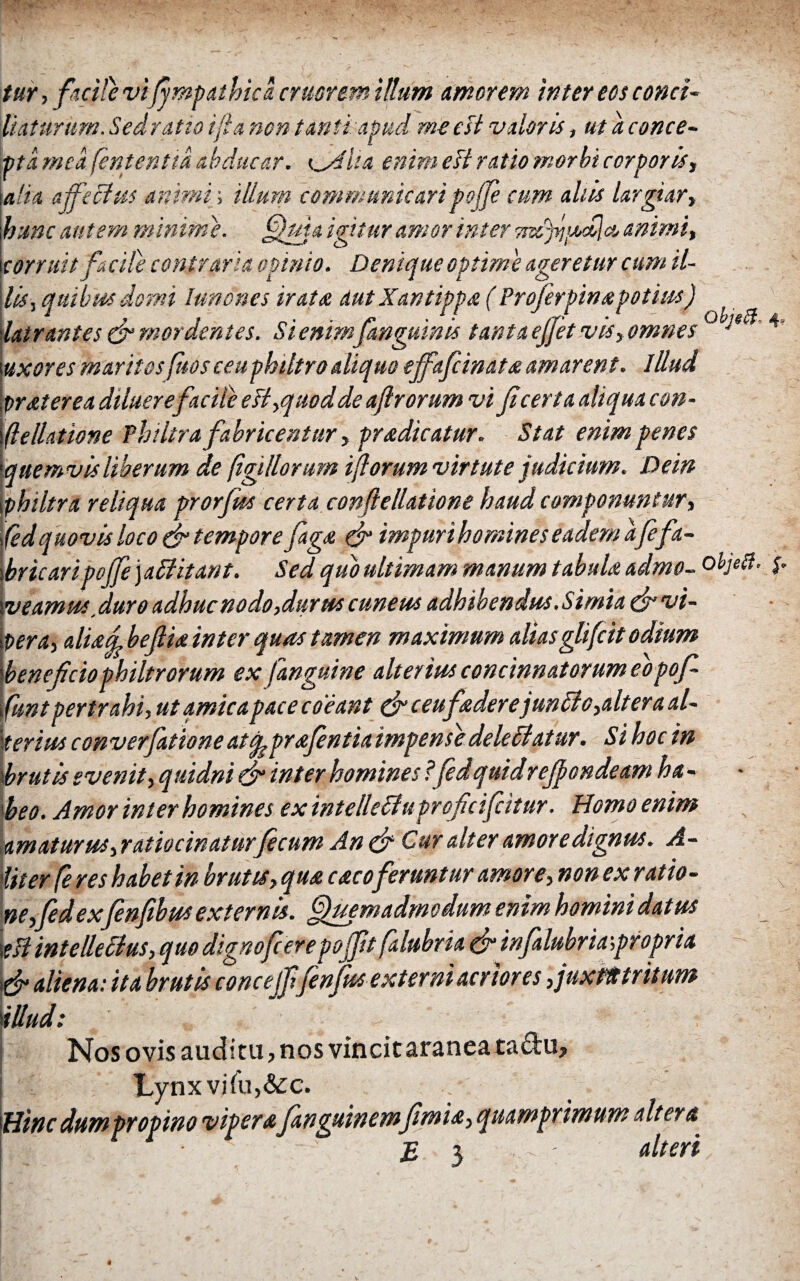 tur, facile vi sympathicâ cruorem illum amorem inter eos conci-
liaturum. Sed ratio ista non tanti apud me est valoris, ut à conce-
ptâ meâ sententiâ abducar. Alia enim est ratio morbi corporis,
alia affectus animi; illum communicari posse cum aliis largiar,
hunc autem minimè. Quia igitur amor inter παθήματα animi,
corruit facilè contraria opinio. Denique optimè ageretur cum il-
lis, quibus domi Iunones iratæ aut Xantippæ (Proserpinæ potius)
latrantes & mordentes. Si enim sanguinis tanta esset vis, omnes
Object. 4.
uxores maritos suos ceu philtro aliquo effascinatæ amarent. Illud
præterea diluere facilè est, quod de astrorum vi si certa aliqua con-
stellatione Philtra fabricentur, prædicatur. Stat enim penes
quemvis liberum de sigillorum istorum virtute judicium. Dein
philtra reliqua prorsus certa constellatione haud componuntur,
sed quovis loco & tempore sagæ & impuri homines eadem à se fa-
bricari posse jactitant. Sed quò ultimam manum tabulæ admo-
Object. 5.
veamus, duro adhuc nodo, durus cuneus adhibendus. Simia & vi-
pera, aliæq; bestiæ inter quas tamen maximum aliàs gliscit odium
beneficio philtrorum ex sanguine alterius concinnatorum eò pos-
sunt pertrahi, ut amica pace coëant & ceu fœdere juncto, altera al-
terius conversatione atq; præsentia impensè delectatur. Si hoc in
brutis evenit, quidni & inter homines? sed quid respondeam ha-
beo. Amor inter homines ex intellectu proficiscitur. Homo enim
amaturus, ratiocinatur secum An & Cur alter amore dignus. A-
liter se res habet in brutis, quæ cæco feruntur amore, non ex ratio-
ne, sed ex sensibus externis. Quemadmodum enim homini datus
est intellectus, quo dignoscere possit salubria & insalubria; propria
& aliena: ita brutis concessi sensus externi acriores, juxtà tritum
illud:
Nos ovis auditu, nos vincit aranea tactu,
Lynx visu, &c.
Hinc dum propino viperæ sanguinem simiæ, quamprimum altera
E 3
alteri